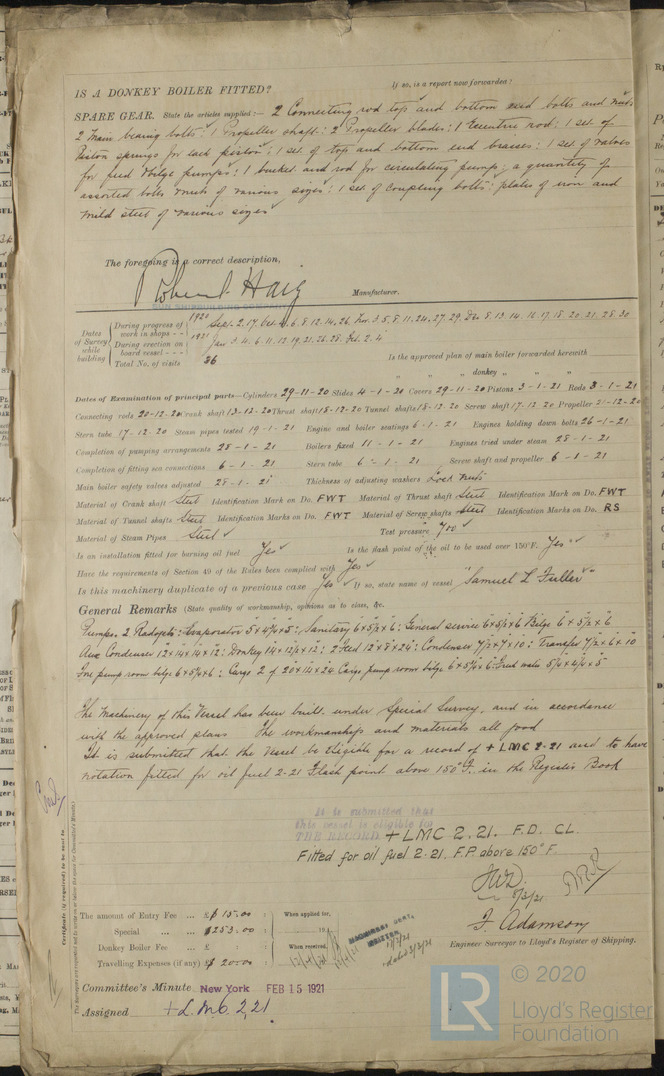 IS A DONKEY BOILER FITTED? If so, is a report now forwarded?
SPARE GEAR. State the articles supplied:— 2 Connecting rod top and bottom end bolts and nuts
2 Main bearing bolts: 1 Propeller shaft: 2 Propeller blades: 1 Eccentric rod: 1 set of
Piston springs for each piston: 1 set of top and bottom end brasses: 1 set of valves
for feed & bilge pumps: 1 bucket and rod for circulating pump; a quantity of
assorted bolts & nuts of various sizes: 1 set of coupling bolts: plates of iron and
mild steel of various sizes
The foregoing is a correct description,
Robert Haig Manufacturer.
SUN SHIPBUILDING COMPANY
Dates of Survey while building
During progress of work in shops - - 1920 Sept. 2. 17. Oct. 6. 8. 12. 14. 26. Nov. 3. 5. 8. 11. 24. 27. 29. Dec. 8. 13. 14. 16. 17. 18. 20. 21. 28. 30
During erection on board vessel - - - 1921 Jan 3. 4. 6. 11. 12. 19. 21. 26. 28. Feb. 2. 4
Total No. of visits 36 Is the approved plan of main boiler forwarded herewith
" " " donkey " " "
Dates of Examination of principal parts—Cylinders 29-11-20 Slides 4-1-20 Covers 29-11-20 Pistons 3-1-21 Rods 3-1-21
Connecting rods 20-12-20 Crank shaft 13-12-20 Thrust shaft 18-12-20 Tunnel shafts 18-12-20 Screw shaft 17-12-20 Propeller 21-12-20
Stern tube 17-12-20 Steam pipes tested 19-1-21 Engine and boiler seatings 6-1-21 Engines holding down bolts 26-1-21
Completion of pumping arrangements 28-1-21 Boilers fixed 11-1-21 Engines tried under steam 28-1-21
Completion of fitting sea connections 6-1-21 Stern tube 6-1-21 Screw shaft and propeller 6-1-21
Main boiler safety valves adjusted 28-1-21 Thickness of adjusting washers Lock nuts
Material of Crank shaft Steel Identification Mark on Do. FWT Material of Thrust shaft Steel Identification Mark on Do. FWT
Material of Tunnel shafts Steel Identification Marks on Do. FWT Material of Screw shafts Steel Identification Marks on Do. RS
Material of Steam Pipes Steel Test pressure 700
Is an installation fitted for burning oil fuel Yes Is the flash point of the oil to be used over 150°F. Yes
Have the requirements of Section 49 of the Rules been complied with Yes
Is this machinery duplicate of a previous case Yes If so, state name of vessel "Samuel L Fuller"
General Remarks (State quality of workmanship, opinions as to class, &c.
Pumps. 2 Radojet: Evaporator 5 x 4¾ x 5: Sanitary 6 x 5¾ x 6: General service 6 x 5¾ x 6 Bilge 6 x 5¾ x 6
Aux Condenser 12 x 14 x 14 x 12: Donkey 14 x 12½ x 12: 2 Feed 12 x 8 x 24: Condenser 7½ x 7 x 10: Transfer 7½ x 6 x 10
Fore pump room bilge 6 x 5¾ x 6: Cargo 2 of 20 x 14 x 24 Cargo pump room bilge 6 x 5¾ x 6: Fresh water 5¼ x 4¾ x 5
The Machinery of this Vessel has been built under Special Survey, and in accordance
with the approved plans The workmanship and materials all good
It is submitted that the Vessel be eligible for a record of + LMC 2-21 and to have
notation fitted for oil fuel 2-21 Flash point above 150°F. in the Register Book
It is submitted that
this vessel is eligible for
THE RECORD. + LMC 2.21. F.D. CL.
Fitted for oil fuel 2.21. F.P. above 150°F.
8/3/21
The amount of Entry Fee ... £ $ 15.00 : When applied for,
Special ... ... £ $253.00 :
Donkey Boiler Fee ... £ : When received,
Travelling Expenses (if any) £ $ 20.00 :
F. Adamson
Engineer Surveyor to Lloyd's Register of Shipping.
Committee's Minute New York FEB 15 1921
Assigned + L.M.C. 2,21
Certificate (if required) to be sent to
© 2020
LR Lloyd's Register
Foundation